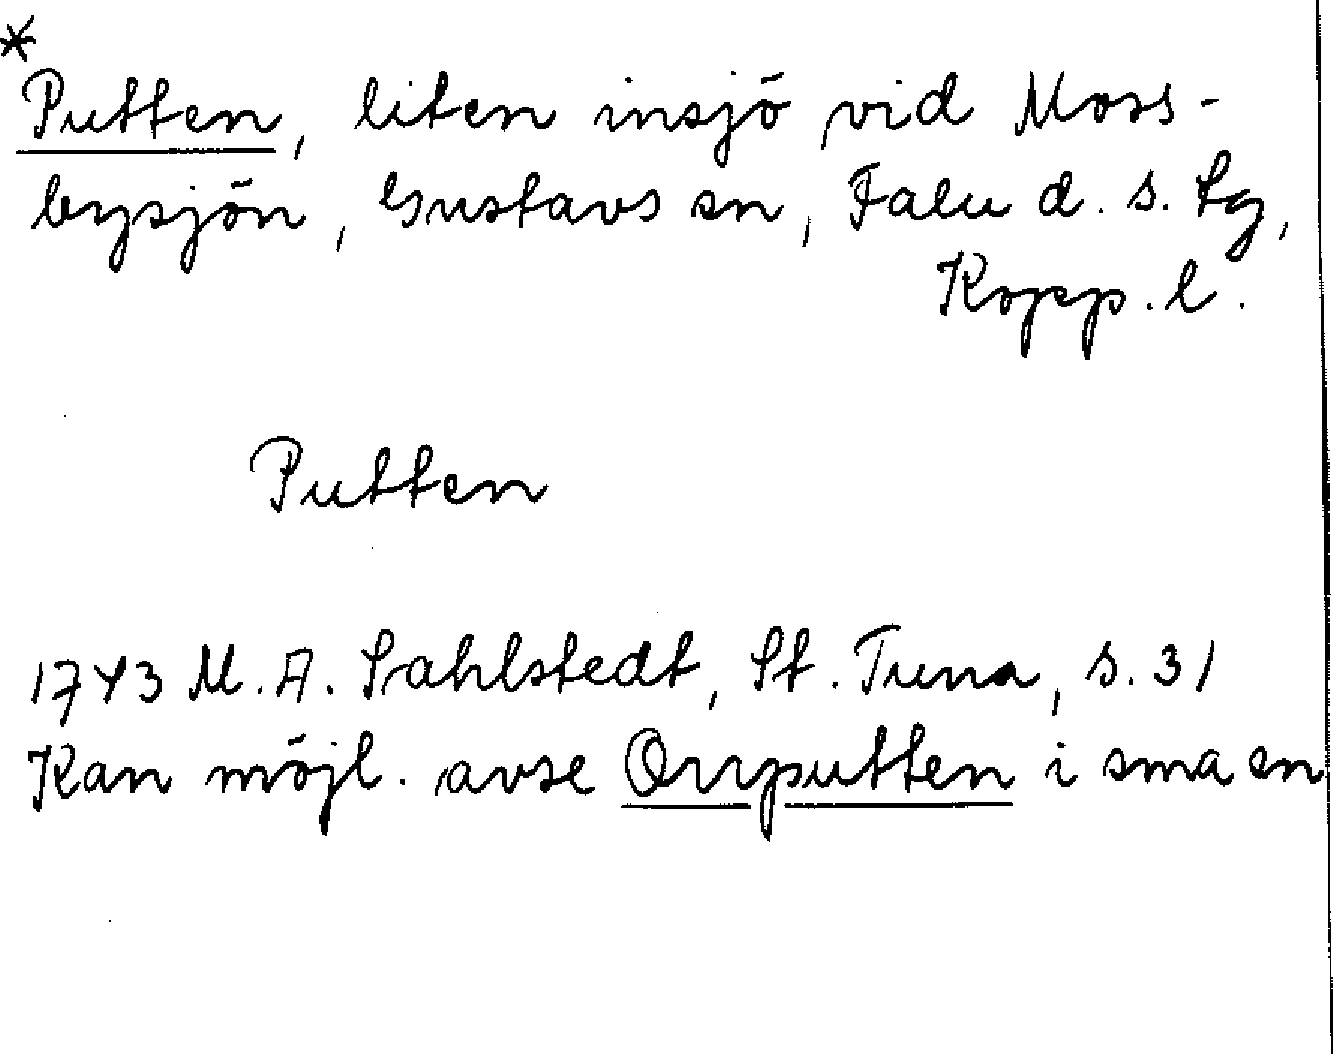 *
Putten, liten insjö vid Moss-
bysjön, Gustavs sn, Falu d. s. tg,
Kopp. l.
Putten
1743 M. A. Sahlstedt, St. Tuna, s. 31
Kan möjl. avse Orrputten i sma sn